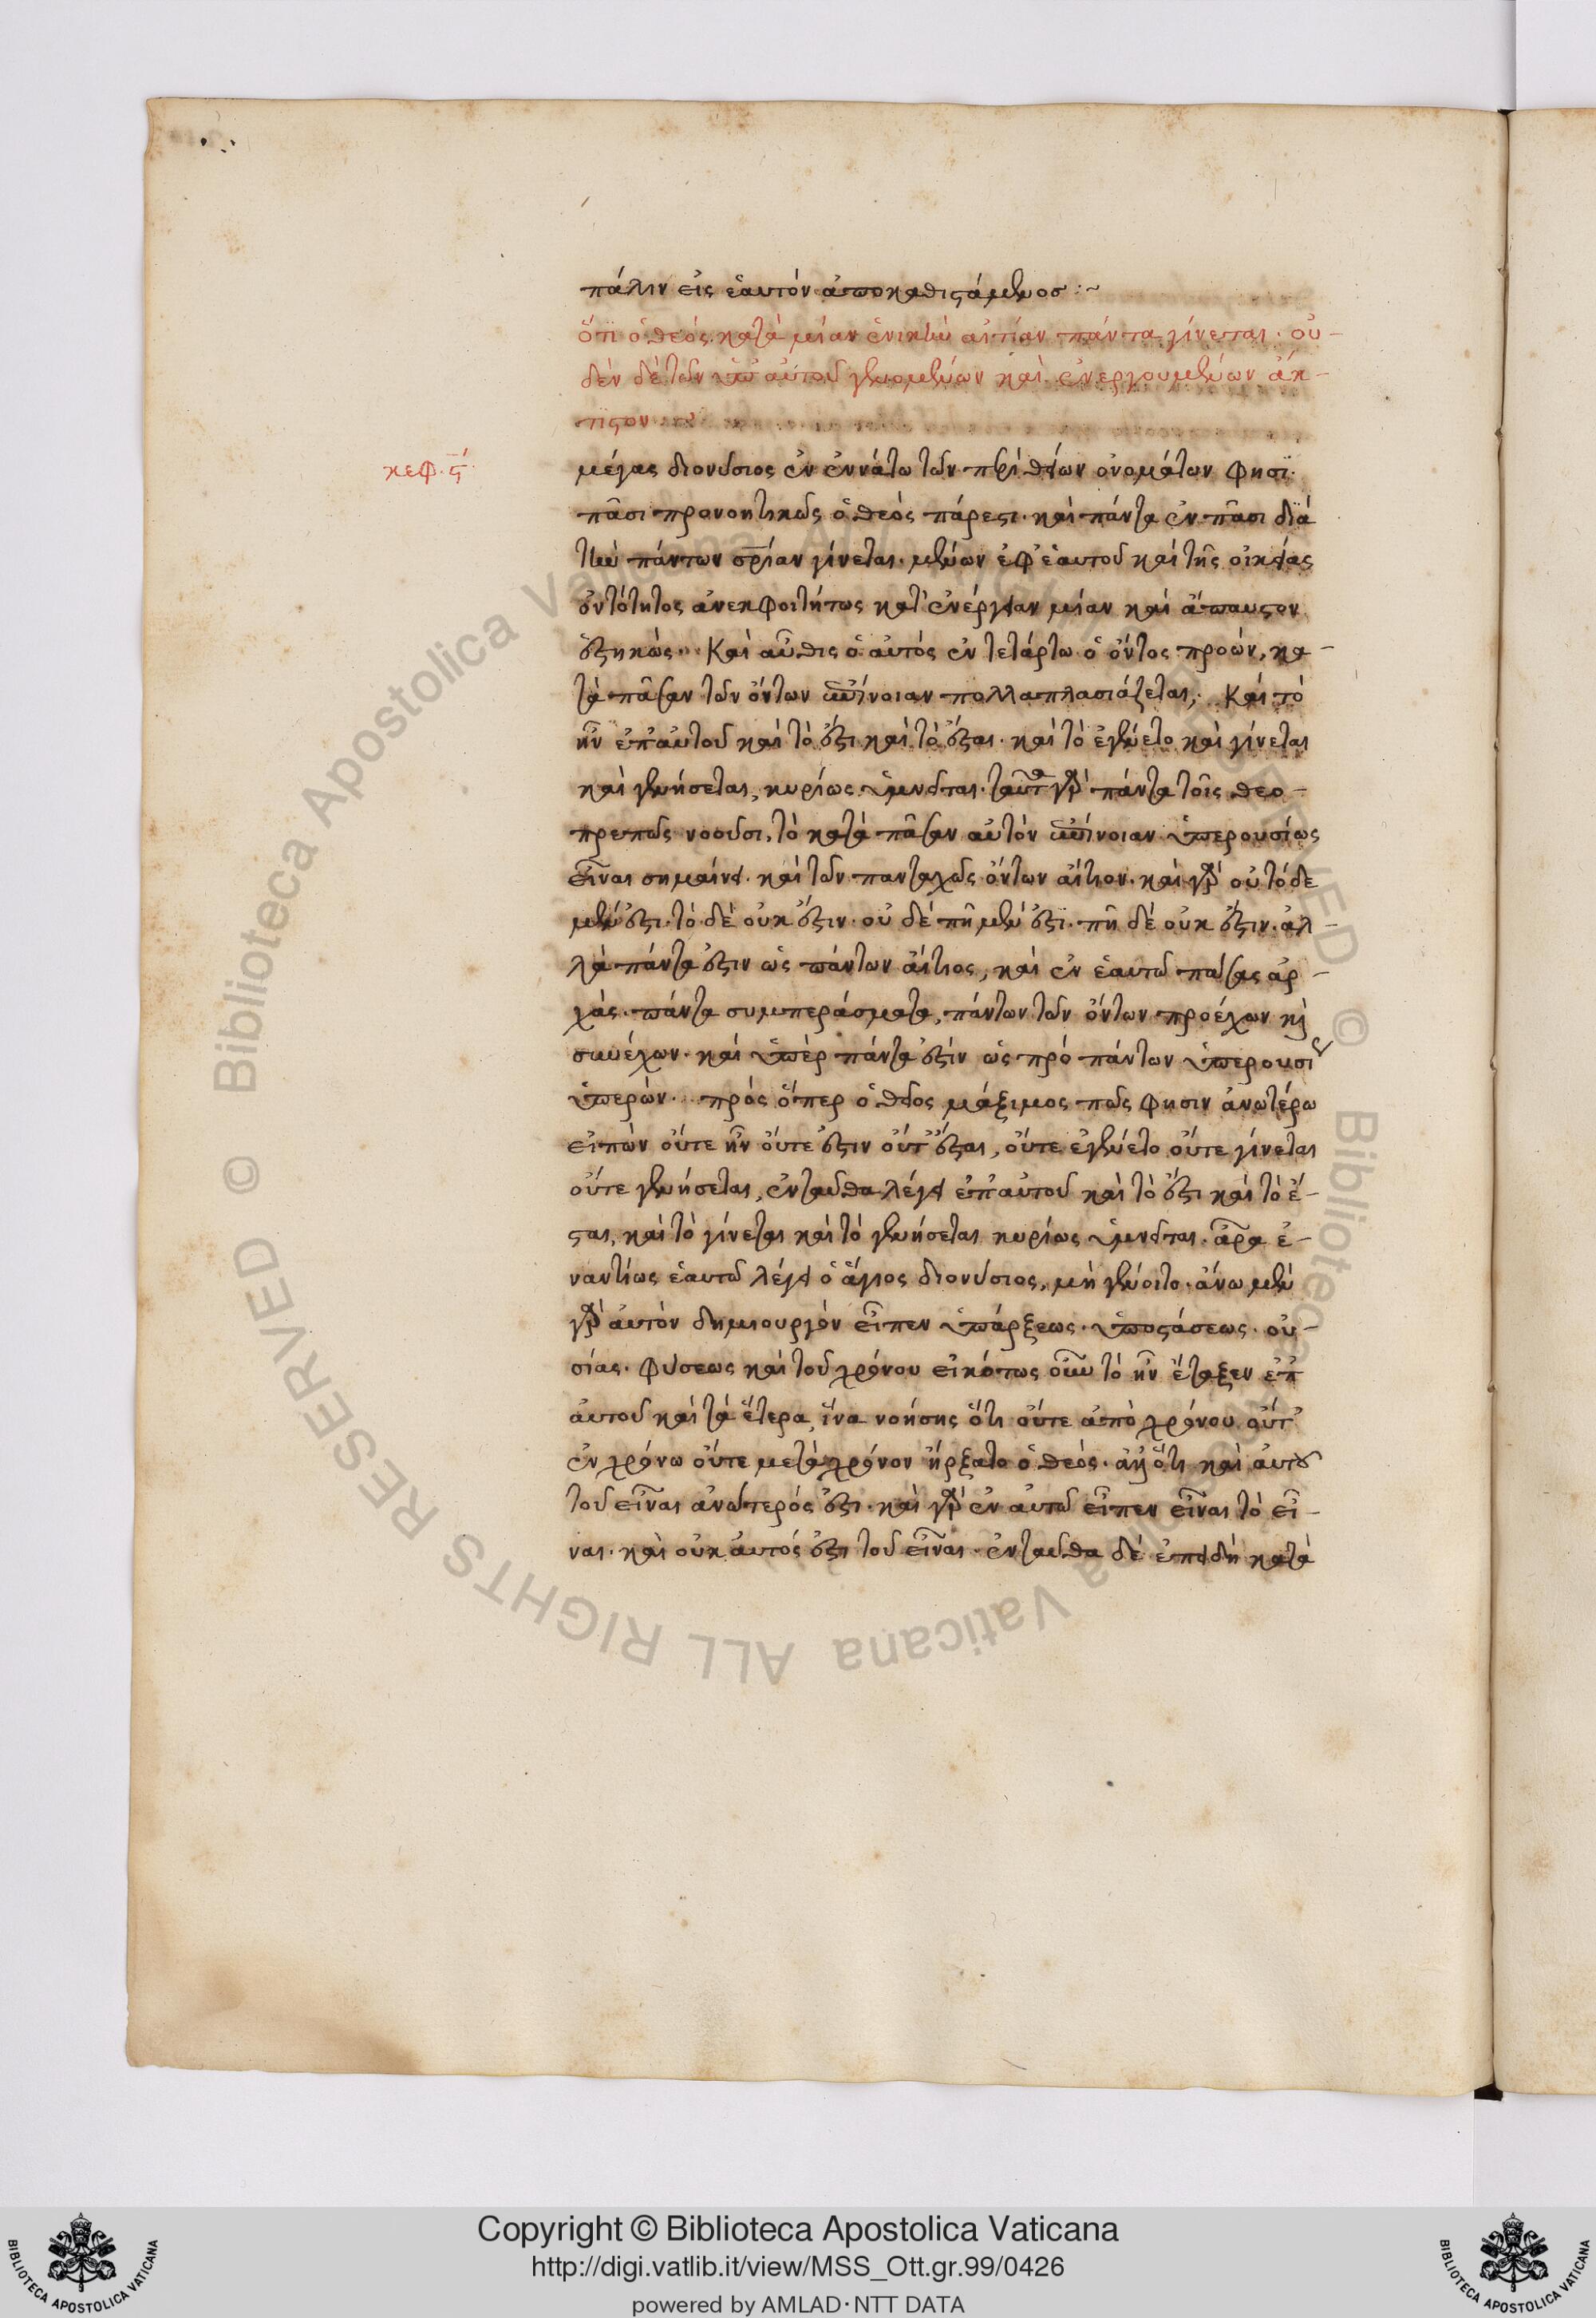 πάλιν εἰς ἑαυτὸν ἀποκαθιστάμενος :~
ὅτι ὁ θεός κατὰ μίαν ἑνικὴν αἰτίαν πάντα γίνεται · οὐ-
δὲν δὲ τῶν ὑπ' αὐτοῦ γενομένων καὶ ἐνεργουμένων ἄκ-
τιστον
κεφ. ς΄
μέγας διονύσιος ἐν ἐννάτω τῶν περὶ θείων ὀνομάτων φησί ·
πᾶσι προνοητικῶς ὁ θεὸς πάρεστι · καὶ πάντα ἐν πᾶσι διὰ
τὴν πάντων σρίαν γίνεται · μένων ἐφ' ἑαυτοῦ καὶ τῆς οἰκείας
ὀντότητος ἀνεκφοιτήτως κατ' ἐνέργειαν μίαν καὶ ἄπαυστον
ἑστηκώς ·· Καὶ αὖθις ὁ αὐτός ἐν τετάρτω ὁ ὄντος προὼν, κα-
τὰ πᾶσαν τῶν ὄντων ἐπίνοιαν πολλαπλασιάζεται, Καὶ τὸ
ἦν ἐπ' αὐτοῦ καὶ τὸ ἔστι καὶ τὸ ἔσται · καὶ τὸ ἐγένετο καὶ γίνεται
καὶ γενήσεται, κυρίως ὑμνεῖται · ταῦτα γὰρ πάντα τοῖς θεο-
πρεπῶς νοοῦσι, τὸ κατὰ πᾶσαν αὐτὸν ἐπίνοιαν ὑπερουσίως
εἶναι σημαίνει · καὶ τῶν πανταχῶς ὄντων αἴτιον · καὶ γὰρ οὐ τόδε
μέν ἐστι · τὸ δὲ οὐκ ἔστιν · οὐ δὲ πῆ μέν ἐστι · πῆ δὲ οὐκ ἔστιν · ἀλ-
λὰ πάντα ἐστιν ὡς πάντων αἴτιος, καὶ ἐν ἑαυτῶ πάσας ἀρ-
χάς · πάντα συμπεράσματα, πάντων τῶν ὄντων προέχων κὶ
συνέχων · καὶ ὑπὲρ πάντα ἐστὶν ὡς πρὸ πάντων ὑπερουσίως
ὑπερών · πρὸς ὅπερ ὁ θεῖος μάξιμος πῶς φησιν ἀνωτέρω
εἰπὼν οὔτε ἦν οὔτε ἔστιν οὔτ' ἔσται, οὔτε ἐγένετο οὔτε γίνεται
οὔτε γενήσεται, ἐνταῦθα λέγει ἐπ' αὐτοῦ καὶ τὸ ἔστι καὶ τὸ ἔ-
σται, καὶ τὸ γίνεται καὶ τὸ γενήσεται κυρίως ὑμνεῖται · ἆρα ἐ-
ναντίως ἑαυτῶ λέγει ὁ ἅγιος διονύσιος, μὴ γένοιτο · ἄνω μὲν
γὰρ αὐτὸν δημιουργὸν εἶπεν ὑπάρξεως · ὑποστάσεως · οὐ-
σίας · φύσεως καὶ τοῦ χρόνου εἰκότως οὖν τὸ ἦν ἔταξεν ἐπ'
αὐτοῦ καὶ τὰ ἕτερα, ἵνα νοήσης ὅτι οὔτε ἀπὸ χρόνου οὔτ'
ἐν χρόνω οὔτε μετὰ χρόνον ἤρξατο ὁ θεός · ἀλλ' ὅτι καὶ αὐτοῦ
τοῦ εἶναι ἀνώτερός ἐστι · καὶ γὰρ ἐν αὐτῶ εἶπεν εἶναι τὸ εἶ-
ναι · καὶ οὐκ αὐτός ἐστι τοῦ εἶναι · ἐνταῦθα δὲ ἐπειδὴ κατὰ
Copyright © Biblioteca Apostolica Vaticana
http://digi.vatlib.it/view/MSS_Ott.gr.99/0426
powered by AMLAD · NTT DATA
BIBLIOTECA APOSTOLICA VATICANA
BIBLIOTECA APOSTOLICA VATICANA